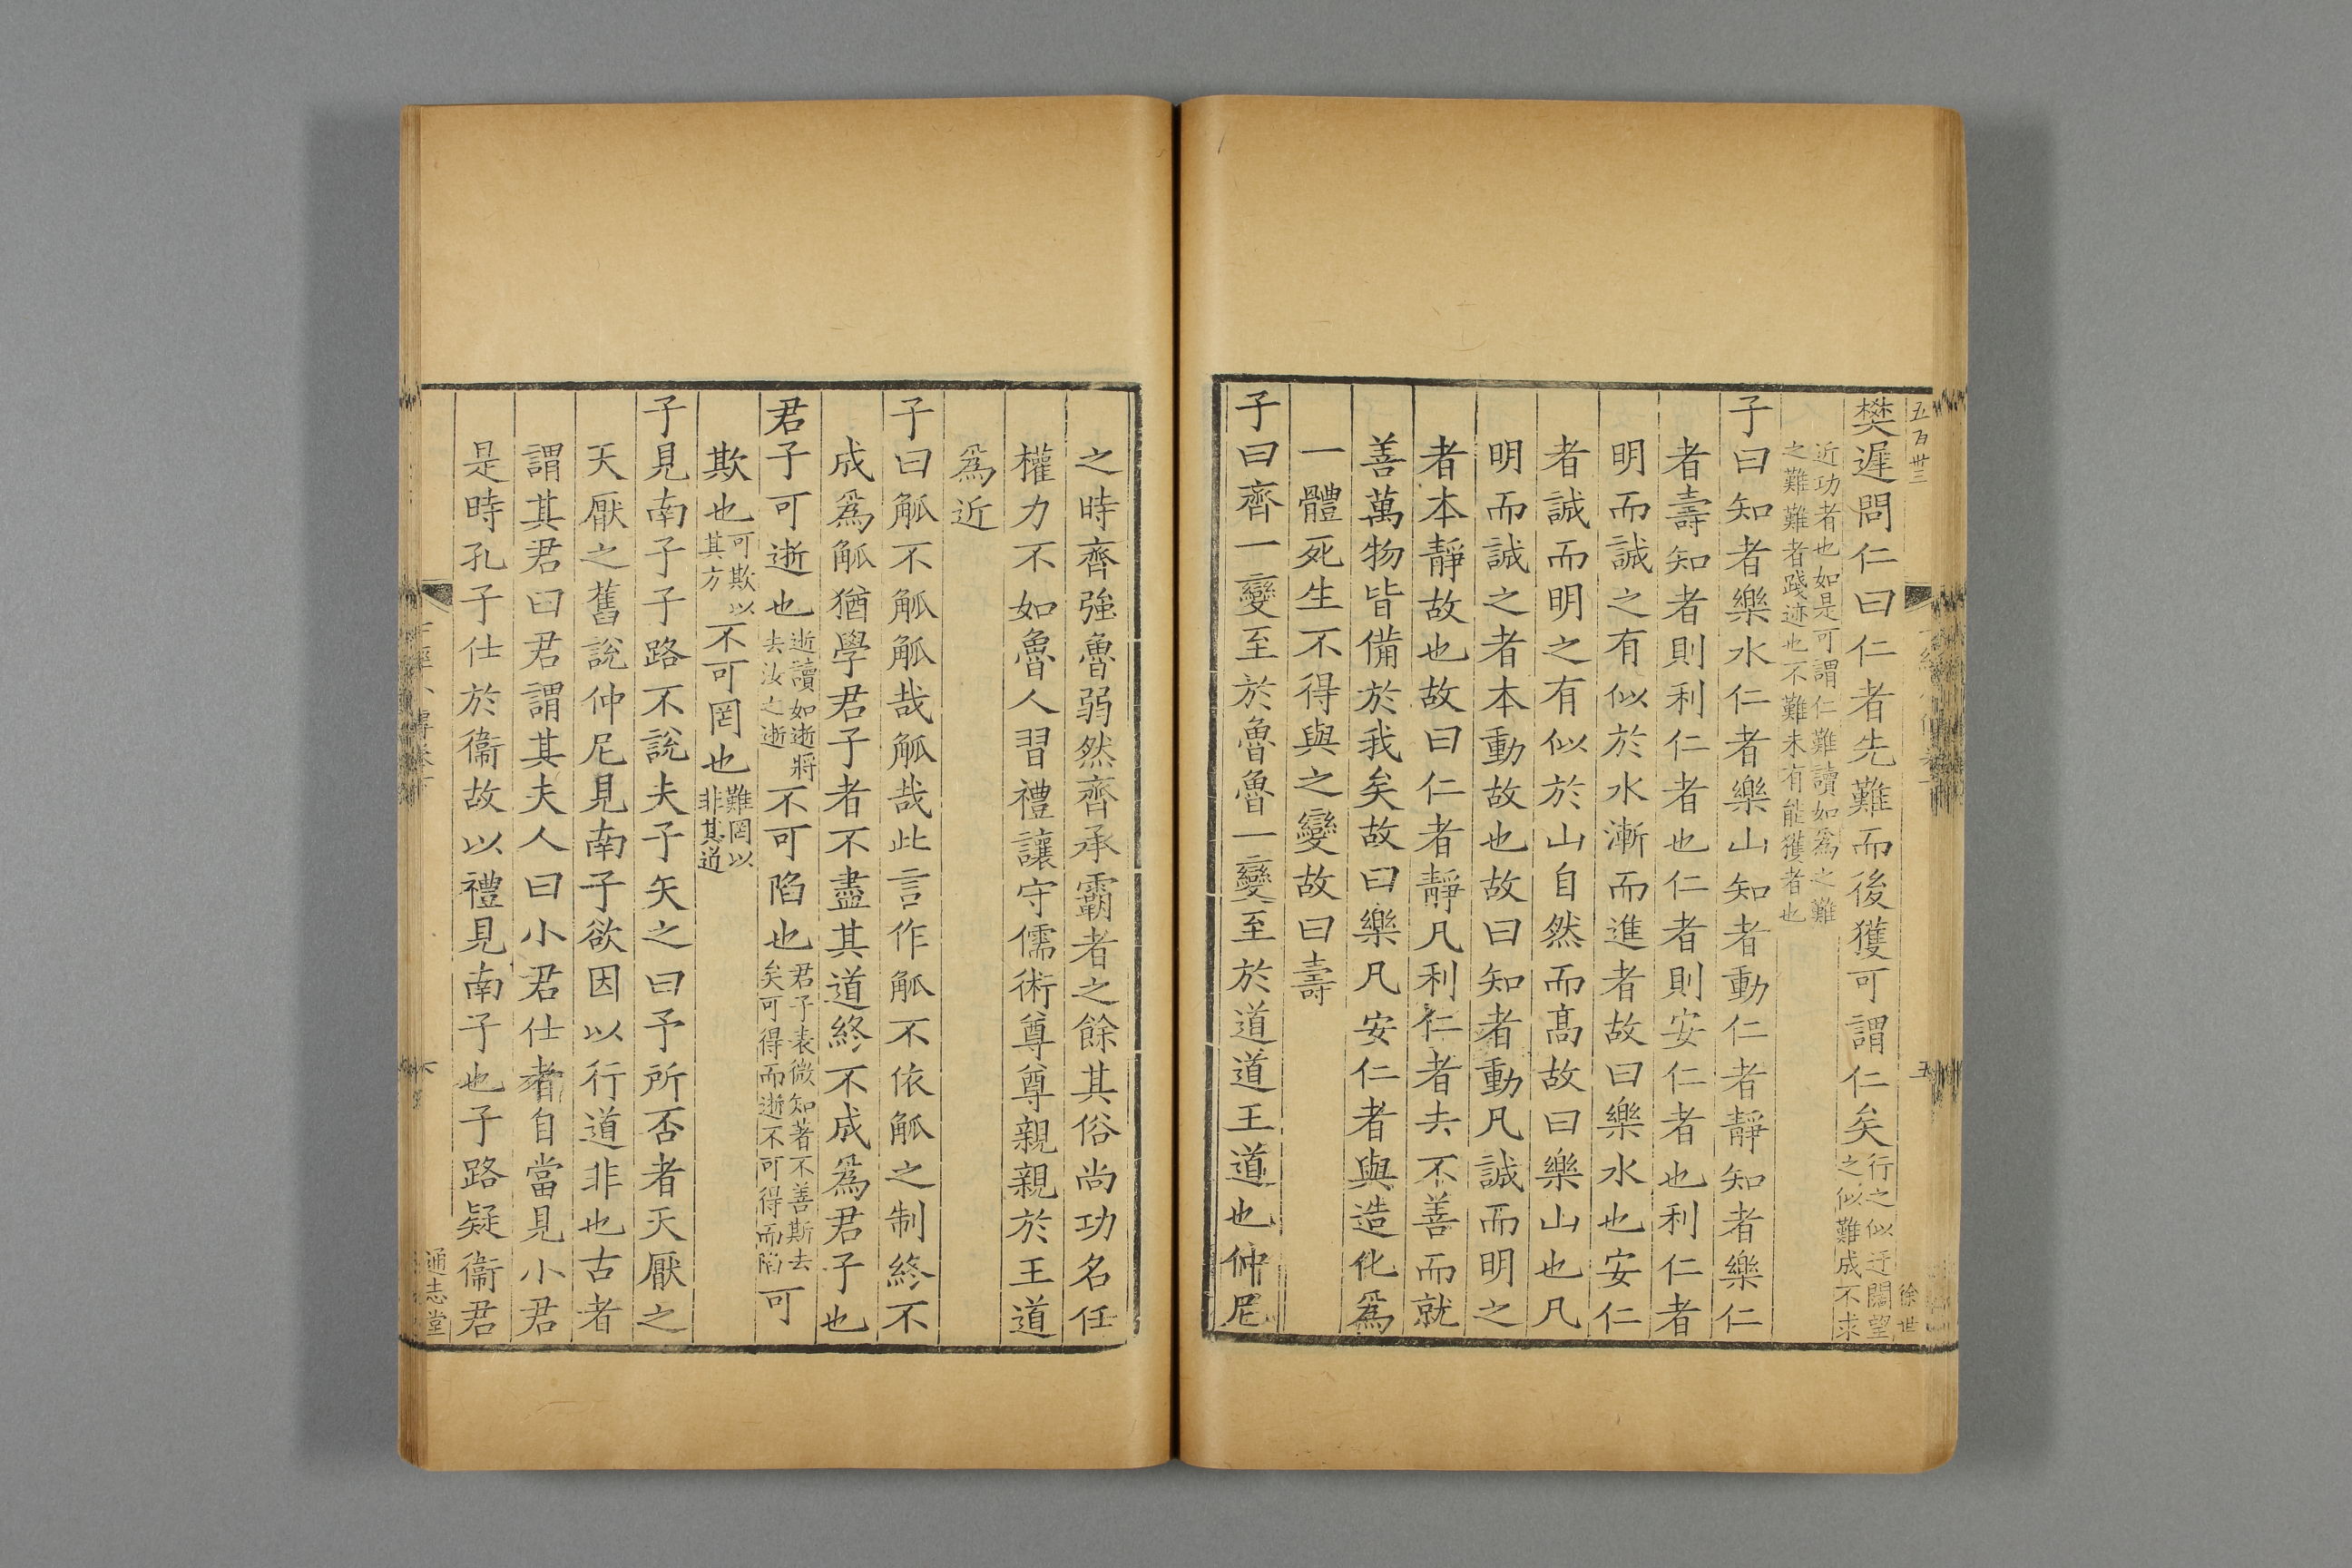 五百卅三
樊遲問仁曰仁者先難而後獲可謂仁矣行之似迂闊望之似難成不求
近功者也如是可謂仁難讀如爲之難之難難者踐迹也不難未有能獲者也
子曰知者樂水仁者樂山知者動仁者靜知者樂仁
者壽知者則利仁者也仁者則安仁者也利仁者
明而誠之有似於水漸而進者故曰樂水也安仁
者誠而明之有似於山自然而髙故曰樂山也凡
明而誠之者本動故也故曰知者動凡誠而明之
者本靜故也故曰仁者靜凡利仁者去不善而就
善萬物皆備於我矣故曰樂凡安仁者與造化爲
一體死生不得與之變故曰壽
子曰齊一變至於魯魯一變至於道道王道也仲尼
五
徐世
之時齊強魯弱然齊承霸者之餘其俗尚功名任
權力不如魯人習禮讓守儒術尊尊親親於王道
爲近
子曰觚不觚觚哉觚哉此言作觚不依觚之制終不
成爲觚猶學君子者不盡其道終不成爲君子也
君子可逝也逝讀如逝將去汝之逝不可陷也君子表微知著不善斯去矣可得而逝不可得而陷可
欺也可欺以其方不可罔也難罔以非其道
子見南子子路不說夫子矢之曰予所否者天厭之
天厭之舊說仲尼見南子欲因以行道非也古者
謂其君曰君謂其夫人曰小君仕者自當見小君
是時孔子仕於衞故以禮見南子也子路疑衞君
通志堂